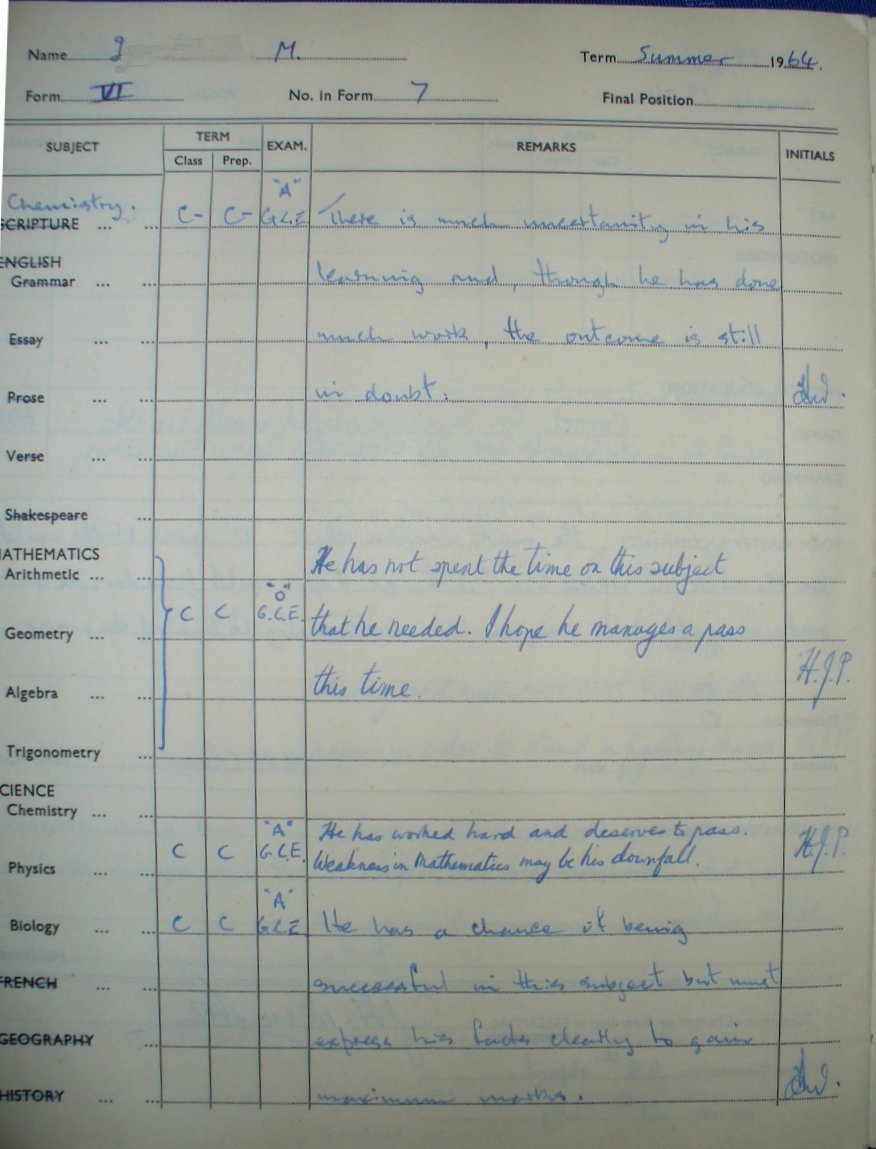 Name J M. Term Summer 1964.
Form VI No. in Form 7 Final Position
SUBJECT TERM EXAM. REMARKS INITIALS
Class Prep.
"A"
Chemistry.
SCRIPTURE ... ... C- C- G.C.E. There is much uncertainity in his
ENGLISH
Grammar ... ... learning and, though he has done
Essay ... ... much work, the outcome is still
Prose ... ... in doubt.
Verse ... ...
Shakespeare ...
MATHEMATICS
Arithmetic ... ... He has not spent the time on this subject
"O"
Geometry ... ... C C G.C.E. that he needed. I hope he manages a pass
Algebra ... ... this time. H.J.P.
Trigonometry ...
SCIENCE
Chemistry ... ...
"A" He has worked hard and deserves to pass.
Physics ... ... C C G.C.E. Weakness in Mathematics may be his downfall. H.J.P.
"A"
Biology ... ... C C G.C.E. He has a chance of being
FRENCH ... ... successful in this subject but must
GEOGRAPHY ... express his facts clearly to gain
HISTORY ... ... maximum marks.